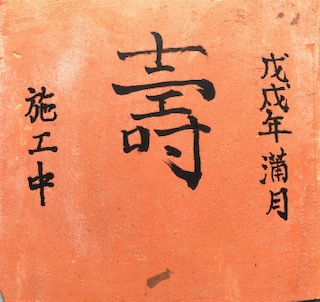 戊戌年蒲月
壽
施工中